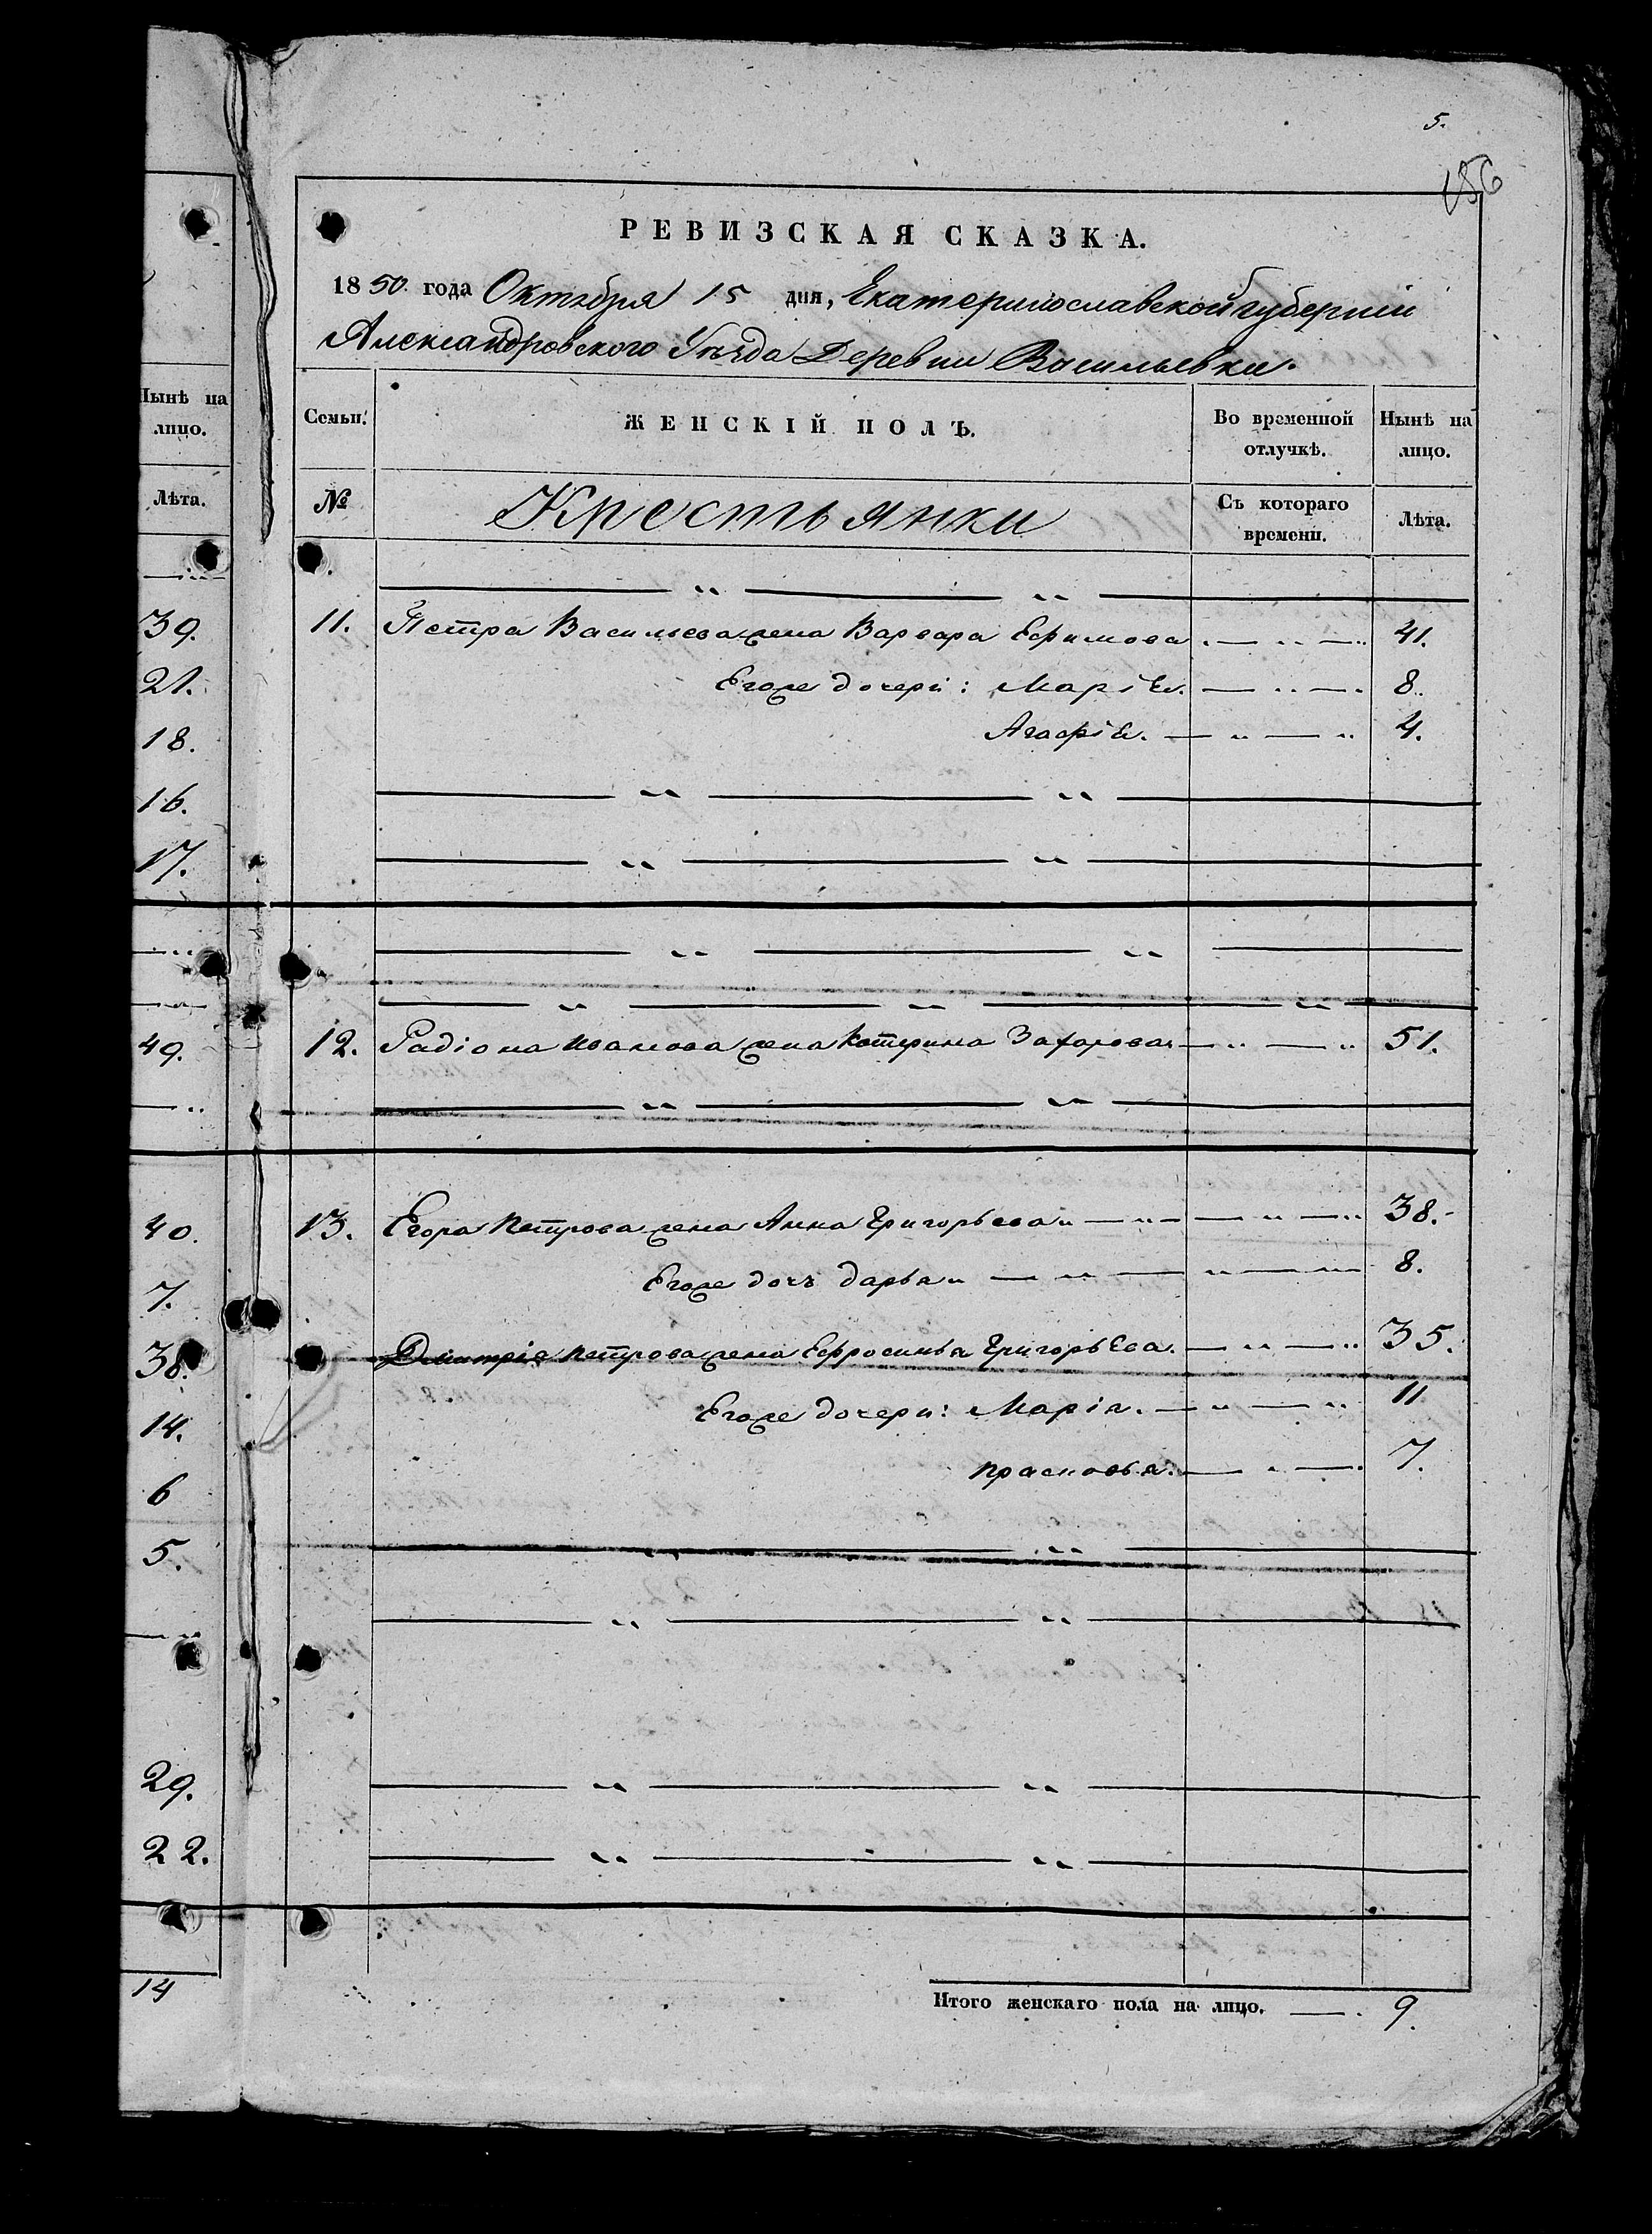 5.
156
РЕВИЗСКАЯ СКАЗКА.
1850 года Октября 15 дня, Екатеринославской губерніи
Александровского Уѣзда Деревни Васильевки.
Нынѣ на лицо.
Семьи.
ЖЕНСКІЙ ПОЛЪ.
Во временной отлучкѣ.
Нынѣ на лицо.
Лѣта.
№
Крестьянки
Съ котораго времени.
Лѣта.
39.
21.
18.
16.
17.
11. Петра Васильева жена Варвара Ефимова 41.
Егоже дочери: Марія. 8.
Агафія. 4.
49.
12. Радіона Иванова жена Катерина Захарова 51.
40.
7.
38.
14.
6
5.
13. Егора Петрова жена Анна Григорьева 38.
Егоже дочь Дарья 8.
Дмитрія Петрова жена Ефросинья Григорьева. 35.
Егоже дочери: Марія. 11
Прасковья. 7.
29.
22.
14
Итого женскаго пола на лицо. 9.